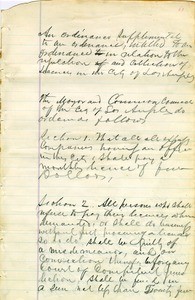 An Ordinance Supplemental
to an Ordinance, entitled "An
ordinance in relation to the
regulation of and collection of
licenses in the City of Los Angeles
The Mayor and Common Council
of the City of Los Angeles do
ordain as follows
Section 1. That all
Companies having an office
in this City, shall pay a
monthly license of five
dollars,
Section 2. All persons who shall
refuse to pay their licenses when
demanded, or shall do business
without first procuring a license
so to do, shall be guilty of
a misdemeanor, and on
Conviction thereof before any
court of Competent juris-
diction, shall be fined in
a sum not less than